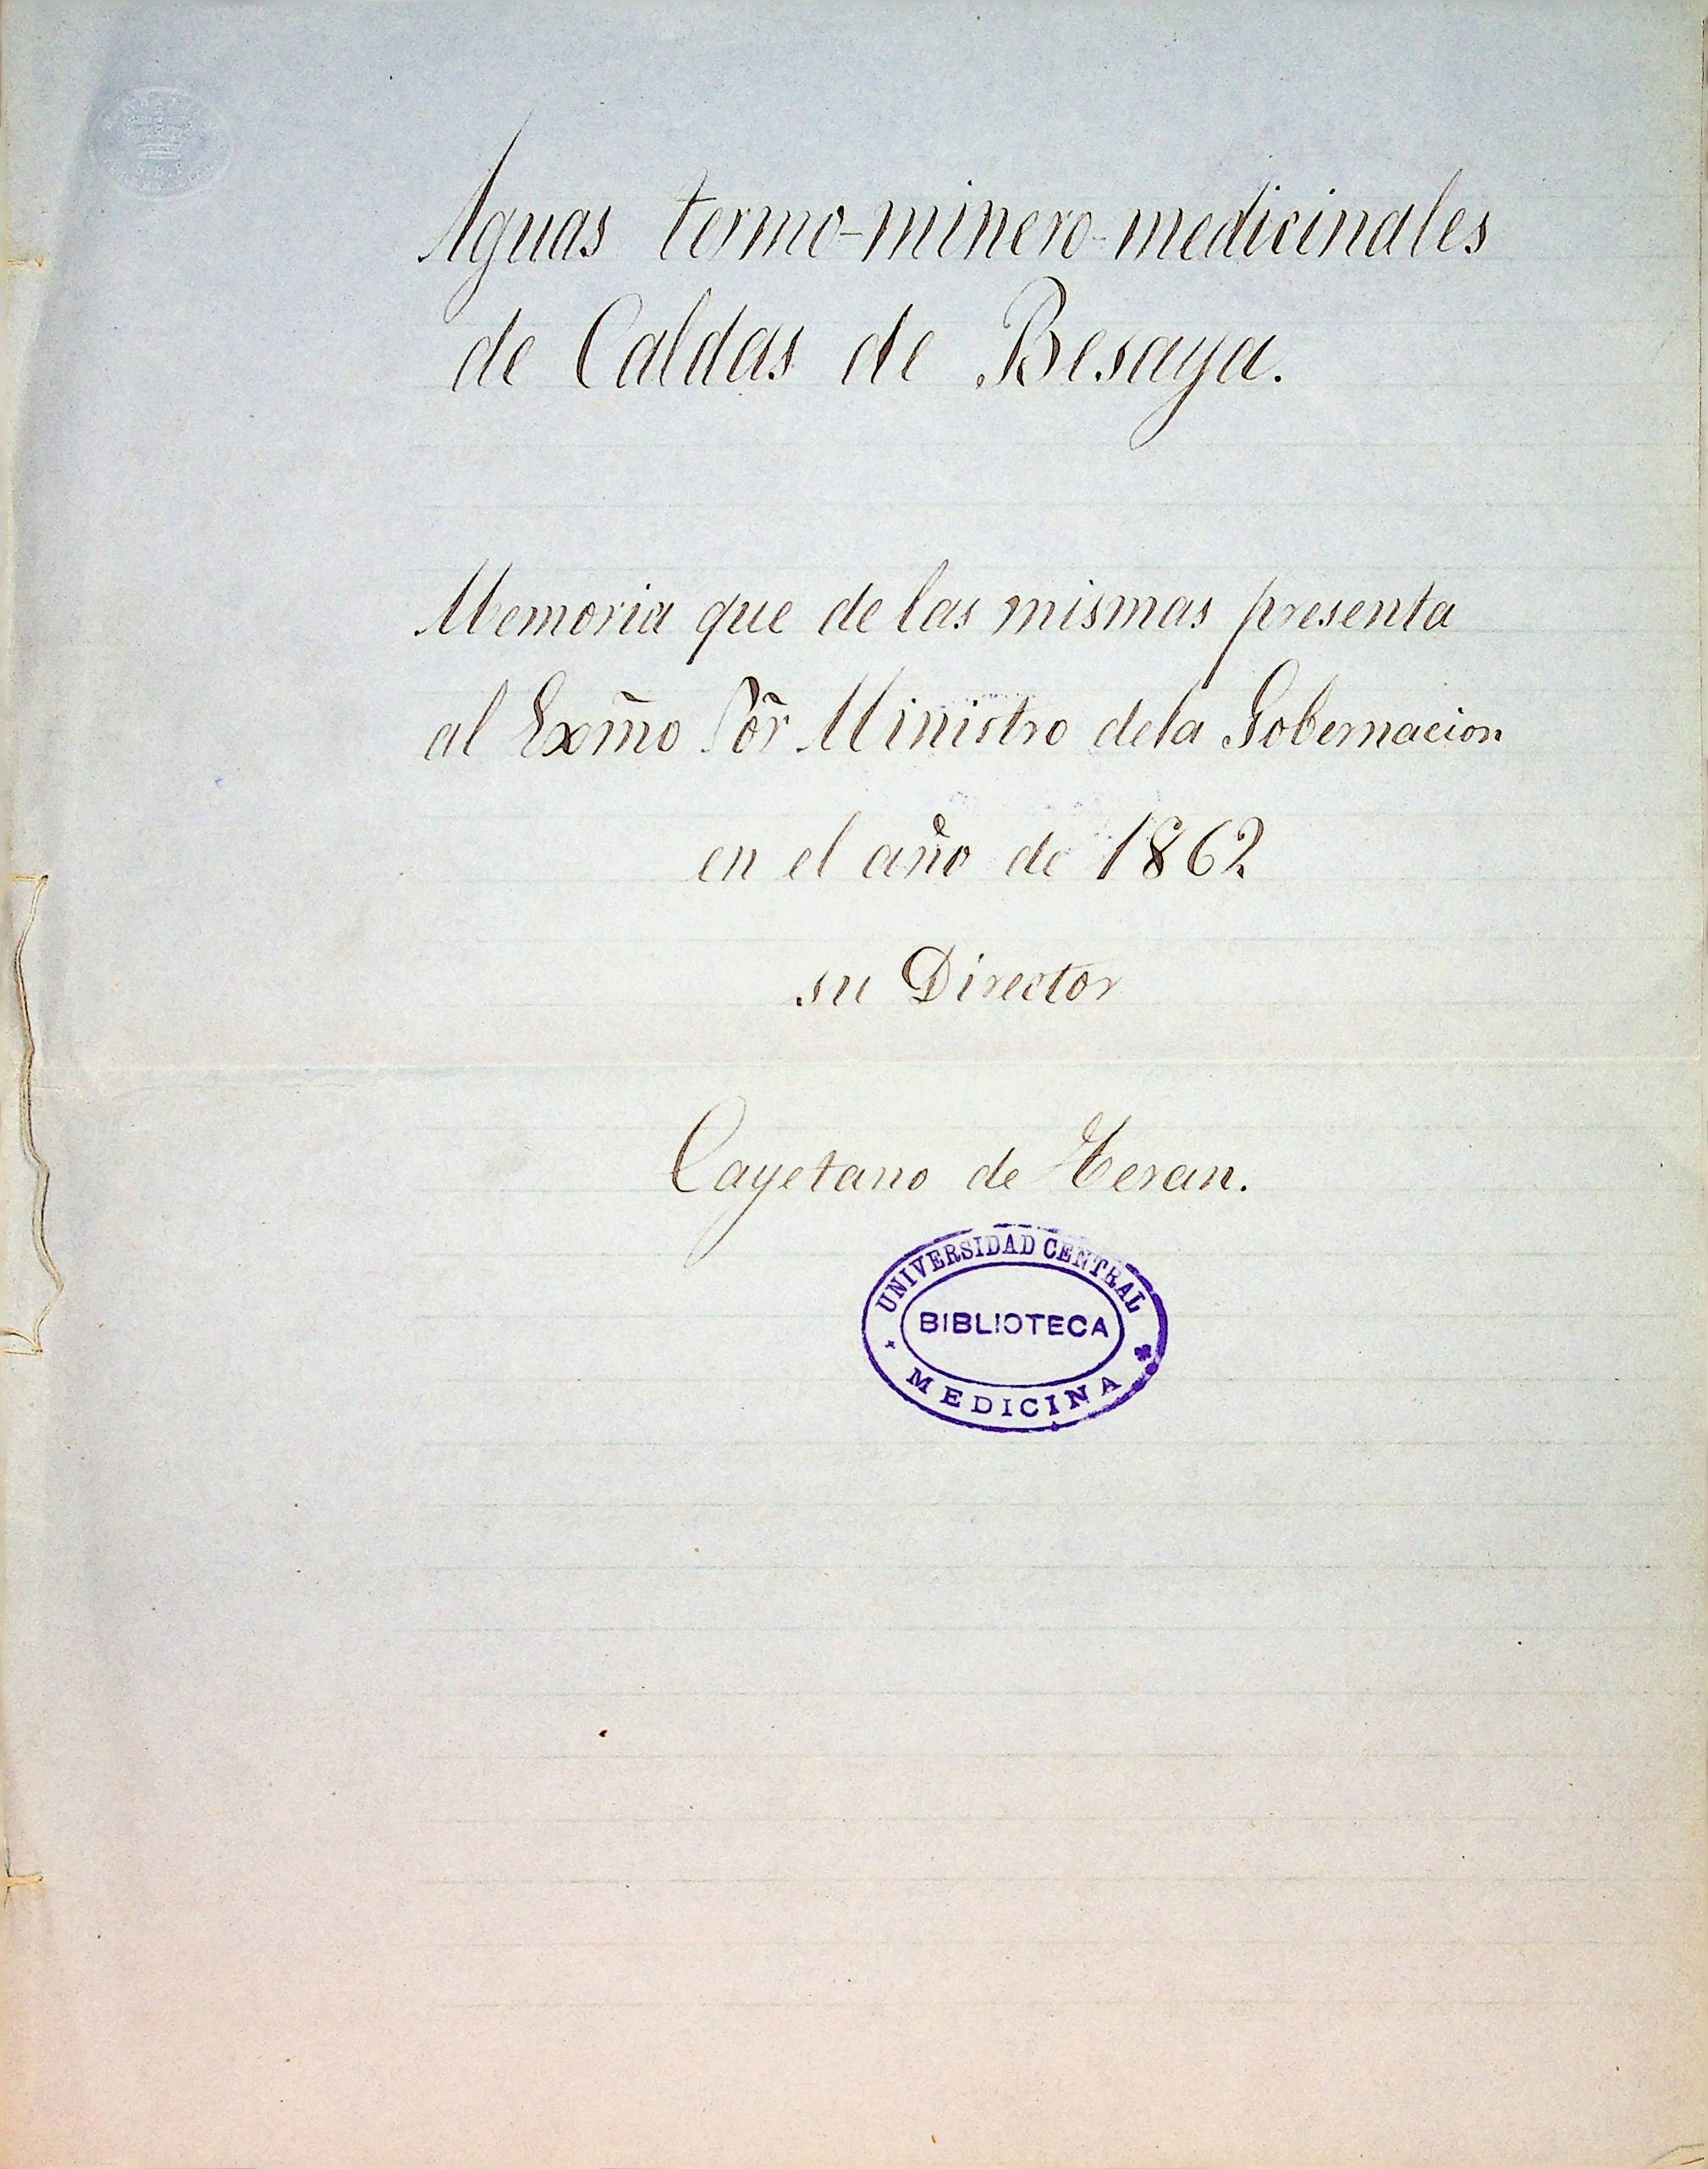 Aguas termo-minero-medicinales
de Caldas de Besaya.
Memoria que de las mismas presenta
al Exm̃o Sõr Ministro de la Gobernacion
en el año de 1862
su Director
Cayetano de Teran.
UNIVERSIDAD CENTRAL
BIBLIOTECA
MEDICINA